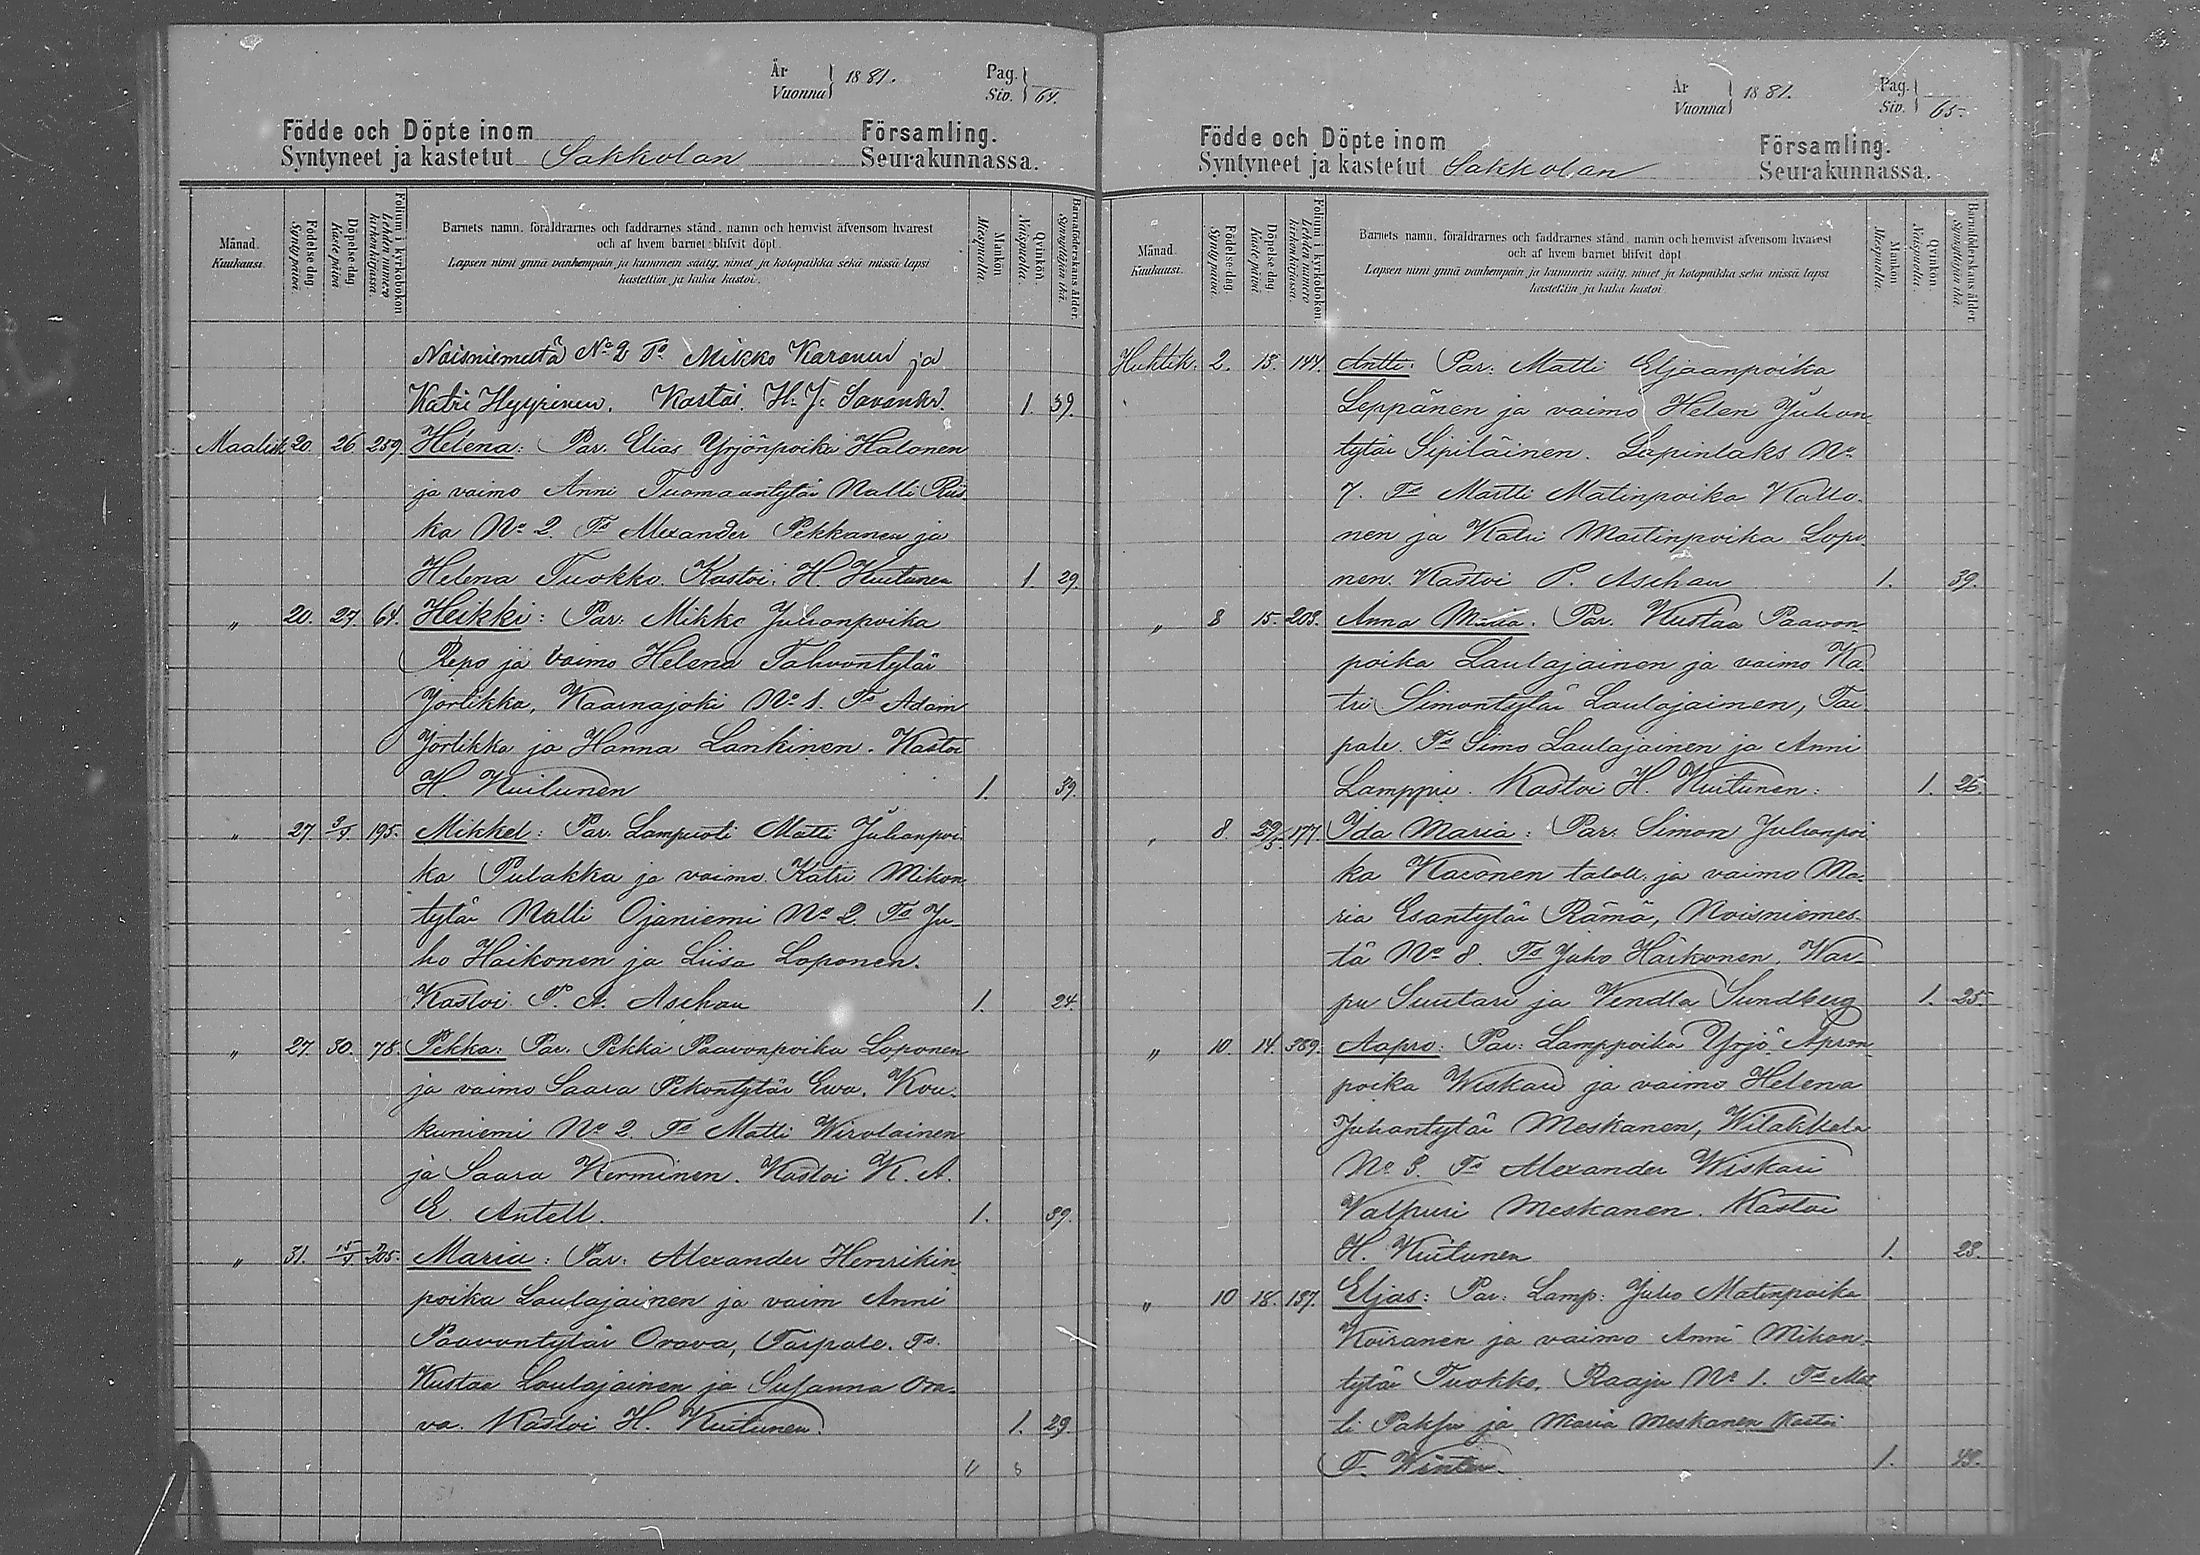 År
Vuonna } 1881.
Pag.
Siv. } 64.
Födde och Döpte inom Församling.
Syntyneet ja kastetut Sakkolan Seurakunnassa.
Månad. Kuukausi.
Födelse-dag. Synty päivä.
Döpelse-dag Kaste päivä
Folium i kyrkoboken Lehden numero kirkonkirjassa.
Barnets namn, föräldrarnes och faddrarnes stånd, namn och hemvist äfvensom hvarest
och af hvem barnet blifvit döpt.
Lapsen nimi ynnä vanhempain ja kummein sääty, nimet ja kotopaikka sekä missä lapsi
kastettiin ja kuka kastoi.
Mankön Miespuolia.
Qvinkön. Naispuolia.
Barnaföderskans ålder. Synnyttäjän ikä.
Noisniemestä No 2 To Mikko Karonen ja
Katri Hyyrinen. Kastoi. H. J. Savenkr. 1. 39.
Maalisk 20. 26. 259. Helena: Par. Elias Yrjönpoika Halonen
ja vaimo Anni Tuomaantytär Nalli Riis
ka No 2. To Alexander Pekkanen ja
Helena Tuokko. Kastoi: H. Kuitunen 1. 29.
" 20. 27. 64. Heikki: Par. Mikko Juhonpoika
Repo ja vaimo Helena Tahvontytär
Yörlikka, Kaarnajoki No 1. To Adam
Yörlikka ja Hanna Lankinen. Kastoi
H. Kuitunen 1. 39.
" 27. 3/4 195. Mikkel: Par. Lampuoti Matti Juhanpoi
ka Pulakka ja vaimo Katri Mikon
tytär Nalli Ojaniemi No 2. To Ju-
ho Häikonen ja Liisa Loponen.
Kastoi P. A. Aschan 1. 24.
" 27. 30. 78. Pekka: Par. Pekka Paavonpoika Loponen
ja vaimo Saara Pekontytär Ewa. Kou-
kuniemi No 2. To Matti Wirolainen
ja Saara Kerminen. Kastoi K. A.
E. Antell. 1. 39.
" 31. 15/4 205. Maria: Par. Alexander Henrikin
poika Laulajainen ja vaim Anni
Paavontytär Orava, Taipale. To.
Kustaa Laulajainen ja Susanna Ora-
va. Kastoi H. Kuitunen. 1. 29.
År
Vuonna } 1881.
Pag.
Siv. } 65.
Födde och Döpte inom Församling.
Syntyneet ja kastetut Sakkolan Seurakunnassa.
Månad. Kuukausi.
Födelse-dag. Synty päivä.
Döpelse-dag Kaste päivä
Folium i kyrkoboken Lehden numero kirkonkirjassa.
Barnets namn, föräldrarnes och faddrarnes stånd, namn och hemvist äfvensom hvarest
och af hvem barnet blifvit döpt
Lapsen nimi ynnä vanhempain ja kummein sääty, nimet ja kotopaikka sekä missä lapsi
kastettiin ja kuka kastoi
Mankön Miespuolia.
Qvinkön Naispuolia.
Barnaföderskans ålder. Synnyttäjän ikä.
Huhtik. 2. 13. 144. Antti: Par: Matti Eljaanpoika
Leppänen ja vaimo Helen Juhon
tytär Sipiläinen. Lapinlaks No
7. To Martti Matinpoika Kallo-
nen ja Katri Martinpoika Lopo-
nen. Kastoi P. Aschan 1. 39.
" 8 15. 203. Anna Maria: Par. Kustaa Paavon-
poika Laulajainen ja vaimo Ka-
tri Simontytär Laulajainen, Tai-
pale. To Simo Laulajainen ja Anni
Lamppu. Kastoi H. Kuitunen: 1. 26.
" 8. 29/5 177. Ida Maria: Par: Simon Juhonpoi
ka Karonen taloll. ja vaimo Ma-
ria Esantytär Rämä, Noisniemes
tä No 8. To Juho Härkonen, War-
pu Suutari ja Vendla Sundberg 1. 25.
" 10. 14. 389. Aapro: Par: Lamppoika Yrjö Apron-
poika Wiskari ja vaimo Helena
Juhontytär Meskanen, Witakkala
No 3. To Alexander Wiskari
Valpuri Meskanen. Kastoi
H. Kuitunen 1. 23.
" 10 18. 137. Eljas: Par: Lamp: Juho Matinpoika
Koiranen ja vaimo Anni Mikon-
tytär Tuokko, Raaju No 1. To Mat
ti Paksu ja Maria Meskanen Kastoi
F. Winter. 1. 43.